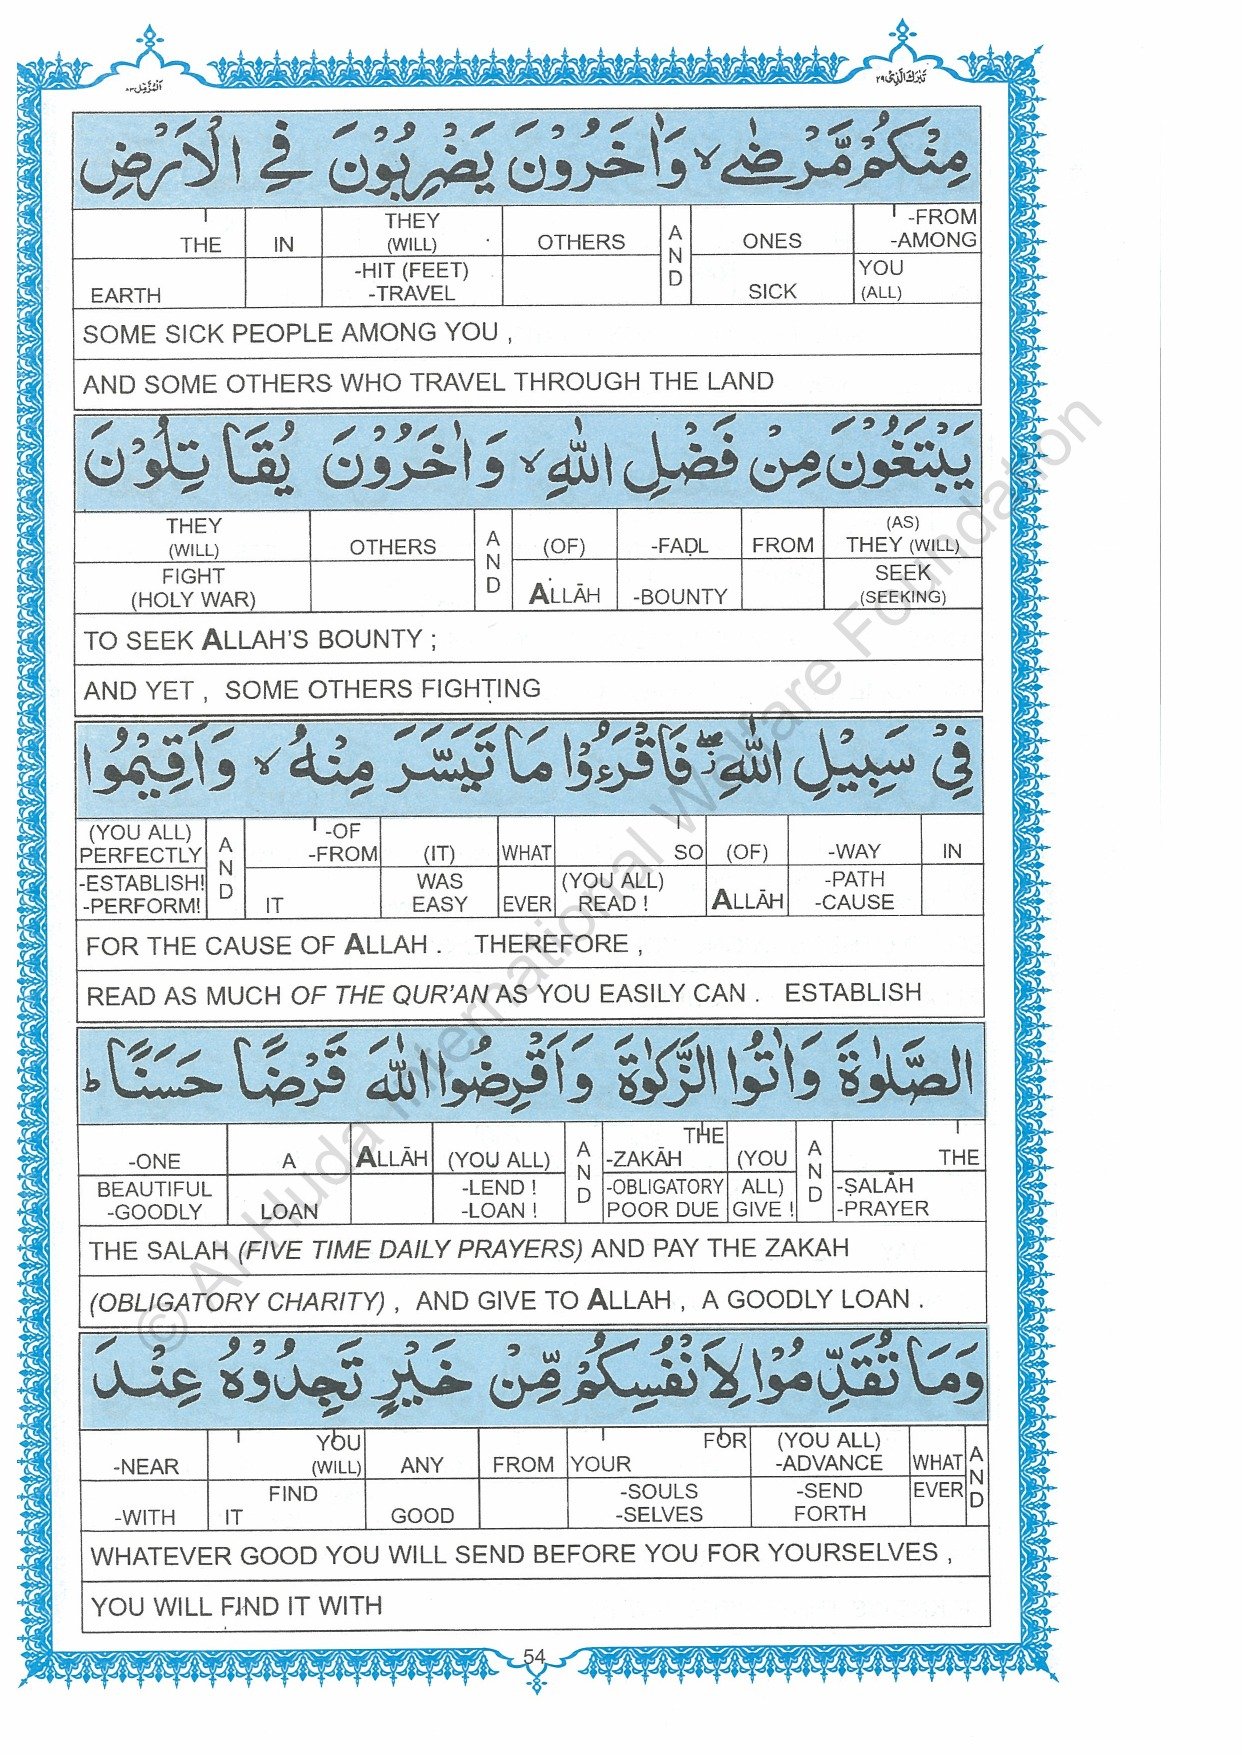 تَبٰرَكَ الَّذِىْ ٢٩
اَلْمُزَّمِّل ٧٣
مِنْكُمْ مَّرْضٰى ۙ وَاٰخَرُوْنَ يَضْرِبُوْنَ فِي الْاَرْضِ
THE IN THEY (WILL) OTHERS AND ONES -FROM -AMONG
EARTH -HIT (FEET) -TRAVEL SICK YOU (ALL)
SOME SICK PEOPLE AMONG YOU ,
AND SOME OTHERS WHO TRAVEL THROUGH THE LAND
يَبْتَغُوْنَ مِنْ فَضْلِ اللّٰهِ ۙ وَاٰخَرُوْنَ يُقَاتِلُوْنَ
THEY (WILL) OTHERS AND (OF) -FAḌL FROM (AS) THEY (WILL)
FIGHT (HOLY WAR) ALLĀH -BOUNTY SEEK (SEEKING)
TO SEEK ALLAH'S BOUNTY ;
AND YET , SOME OTHERS FIGHTING
فِيْ سَبِيْلِ اللّٰهِ ۖ فَاقْرَءُوْا مَا تَيَسَّرَ مِنْهُ ۙ وَاَقِيْمُوا
(YOU ALL) PERFECTLY AND -OF -FROM (IT) WHAT SO (OF) -WAY IN
-ESTABLISH! -PERFORM! IT WAS EASY EVER (YOU ALL) READ ! ALLĀH -PATH -CAUSE
FOR THE CAUSE OF ALLAH . THEREFORE ,
READ AS MUCH OF THE QUR'AN AS YOU EASILY CAN . ESTABLISH
الصَّلٰوةَ وَاٰتُوا الزَّكٰوةَ وَاَقْرِضُوا اللّٰهَ قَرْضًا حَسَنًا ؕ
-ONE A ALLĀH (YOU ALL) AND THE -ZAKĀH (YOU AND THE
BEAUTIFUL -GOODLY LOAN -LEND ! -LOAN ! -OBLIGATORY POOR DUE ALL) GIVE ! -ṢALĀH -PRAYER
THE SALAH (FIVE TIME DAILY PRAYERS) AND PAY THE ZAKAH
(OBLIGATORY CHARITY) , AND GIVE TO ALLAH , A GOODLY LOAN .
وَمَا تُقَدِّمُوْا لِاَنْفُسِكُمْ مِّنْ خَيْرٍ تَجِدُوْهُ عِنْدَ
-NEAR YOU (WILL) ANY FROM YOUR FOR (YOU ALL) -ADVANCE WHAT AND
-WITH FIND IT GOOD -SOULS -SELVES -SEND FORTH EVER
WHATEVER GOOD YOU WILL SEND BEFORE YOU FOR YOURSELVES ,
YOU WILL FIND IT WITH
54
© Al-Huda International Welfare Foundation